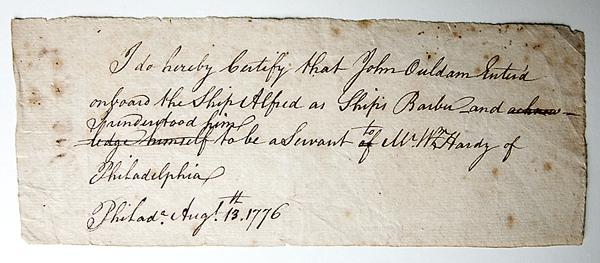 I do hereby Certify that John Ouldam Enter'd
onboard the Ship Alfred as Ships Barber and acknow-
I understood him
ledge himself to be a Servant of to Mr. Wm. Hardy of
Philadelphia
Philada. Augt. 13th. 1776